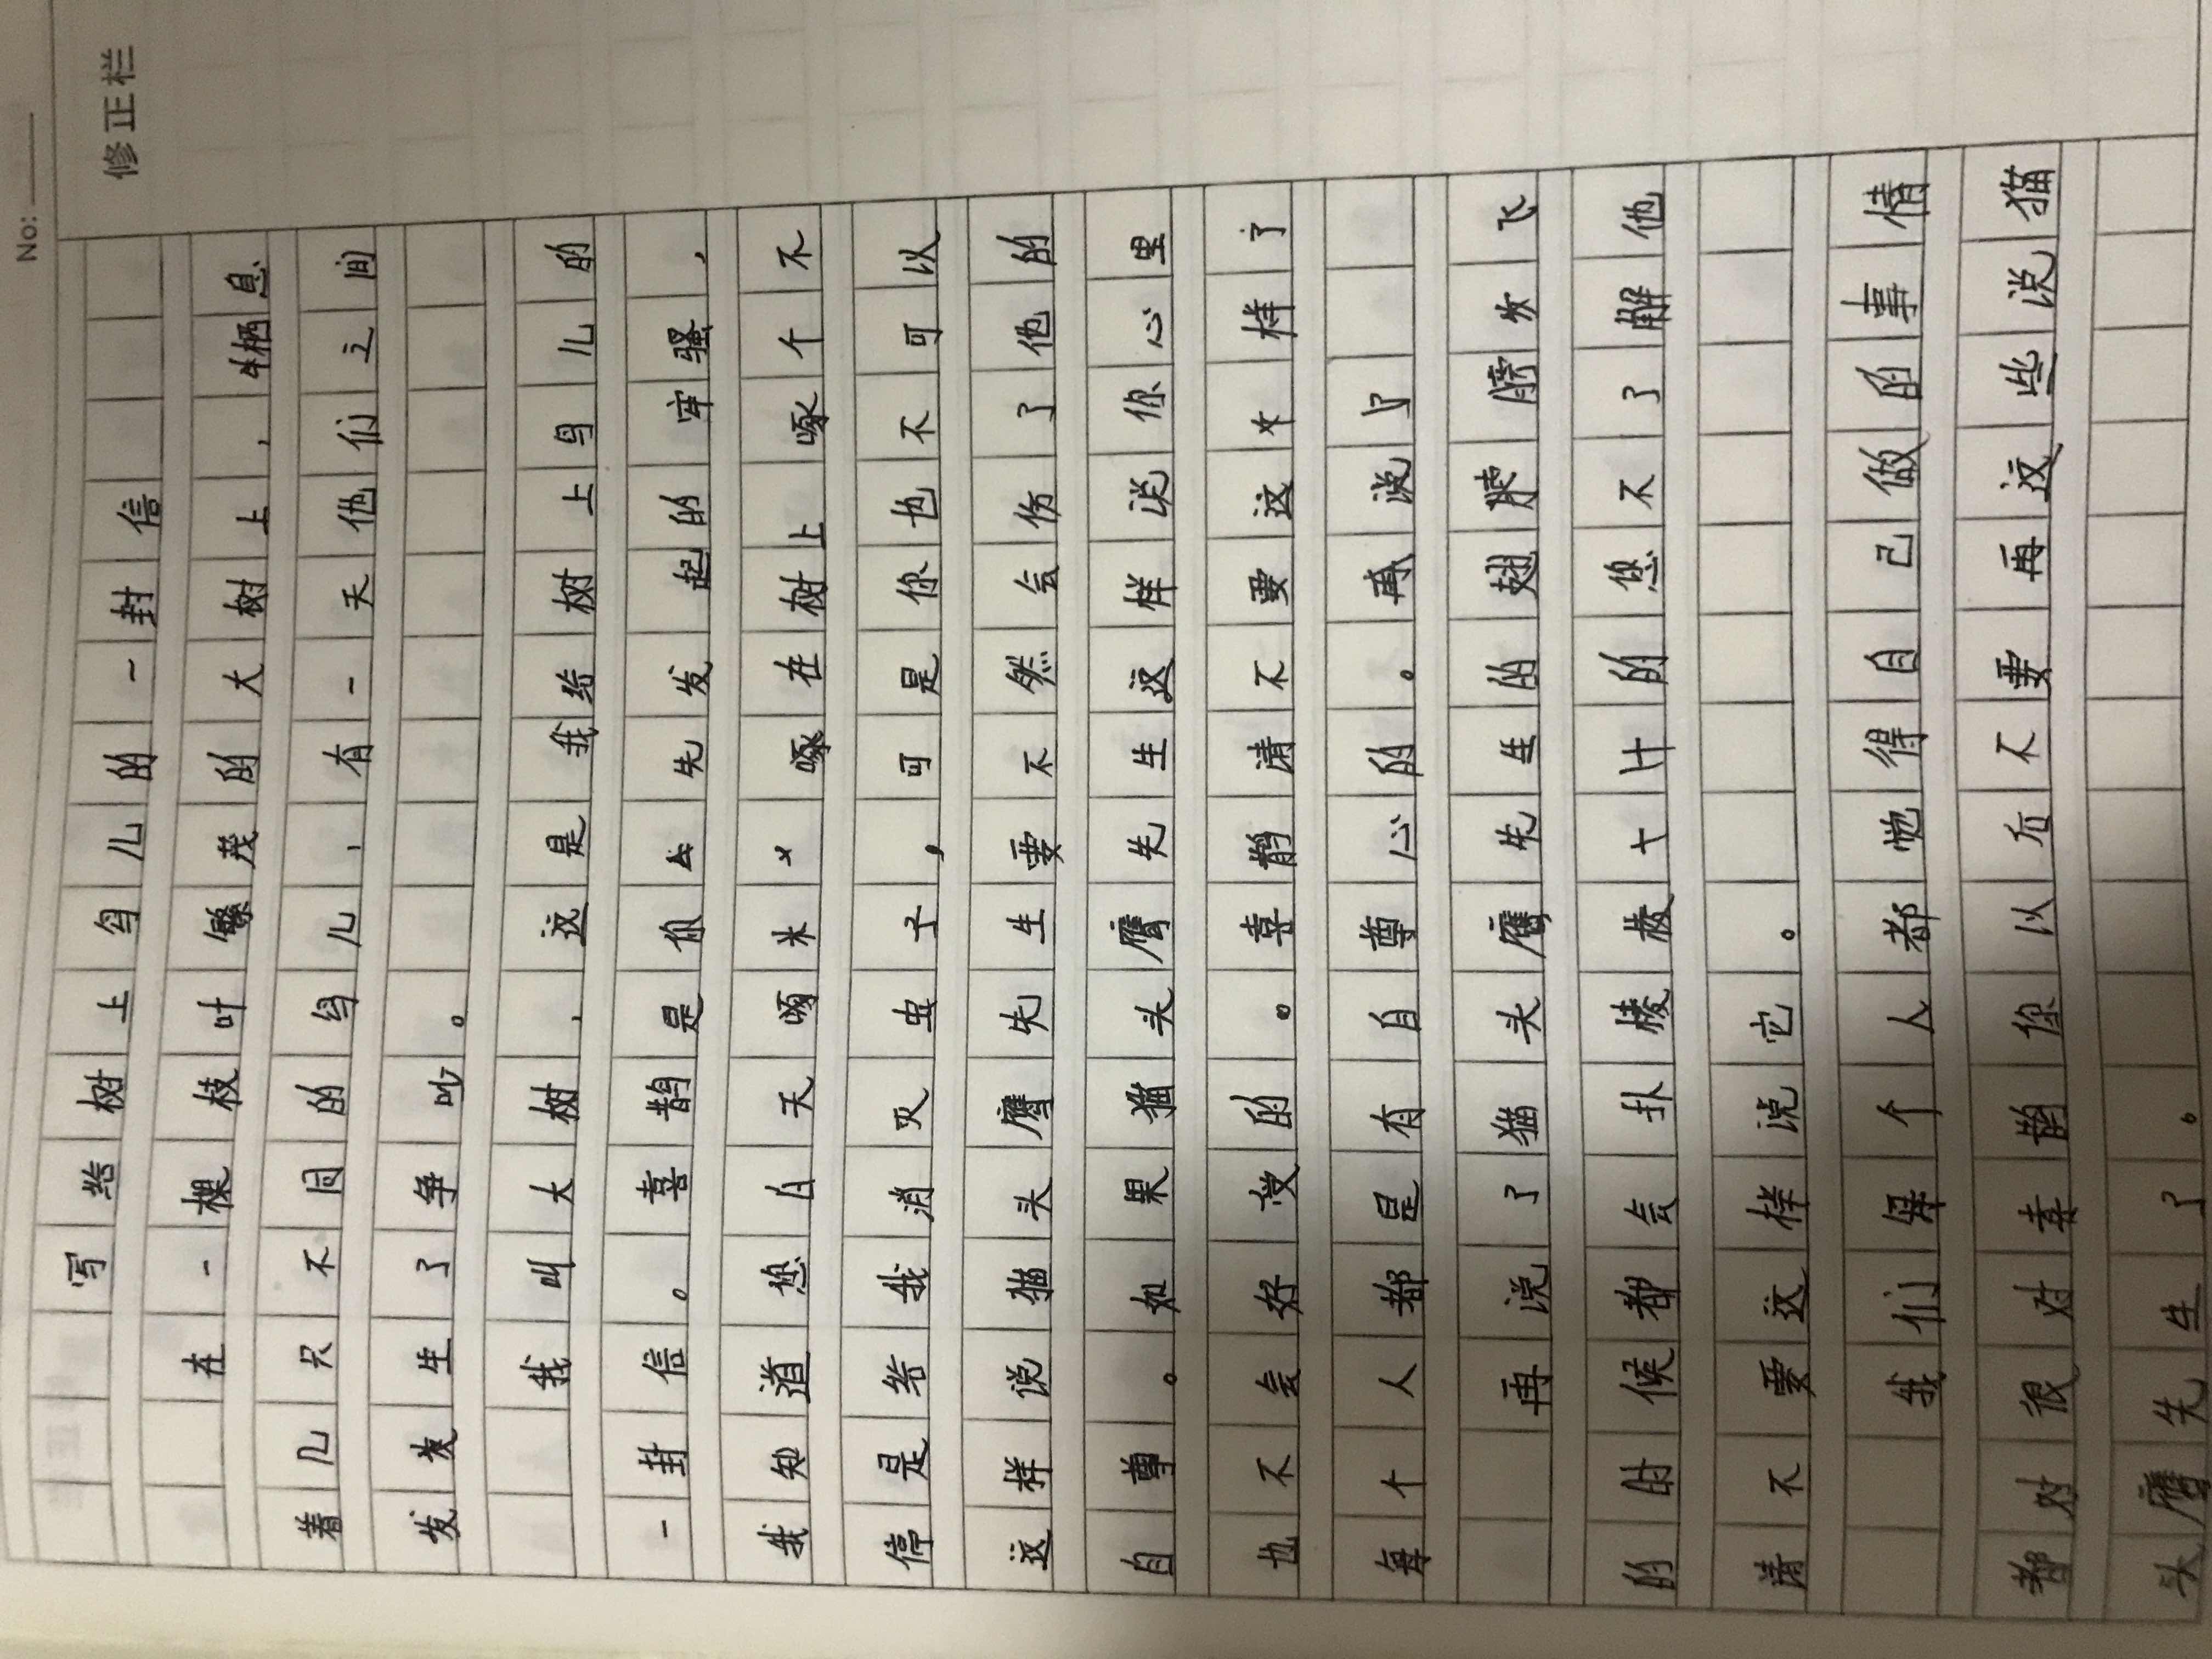 No:
修正栏
写给树上鸟儿的一封信
在一棵枝叶繁茂的大树上，栖息
着几只不同的鸟儿，有一天他们之间
发发生了争吵。
我叫大树，这是我给树上鸟儿的
一封信。喜鹊是你先发起的牢骚，
我知道您白天啄米在树上啄个不
停是给我消灭虫子，可是你也不可以
这样说猫头鹰先生要不然会伤了他的
自尊。如果猫头鹰先生这样说你心里
也不会好受的。喜鹊请不要这样了
每个人都是有自尊心的。再说了
再说了猫头鹰先生的翅膀飞
的时候都会扑棱棱的您不了解他
请不要这样说它。
我们每个人都觉得自己做的事情
都对很对喜鹊你以后不要再这些说猫
头鹰先生了。